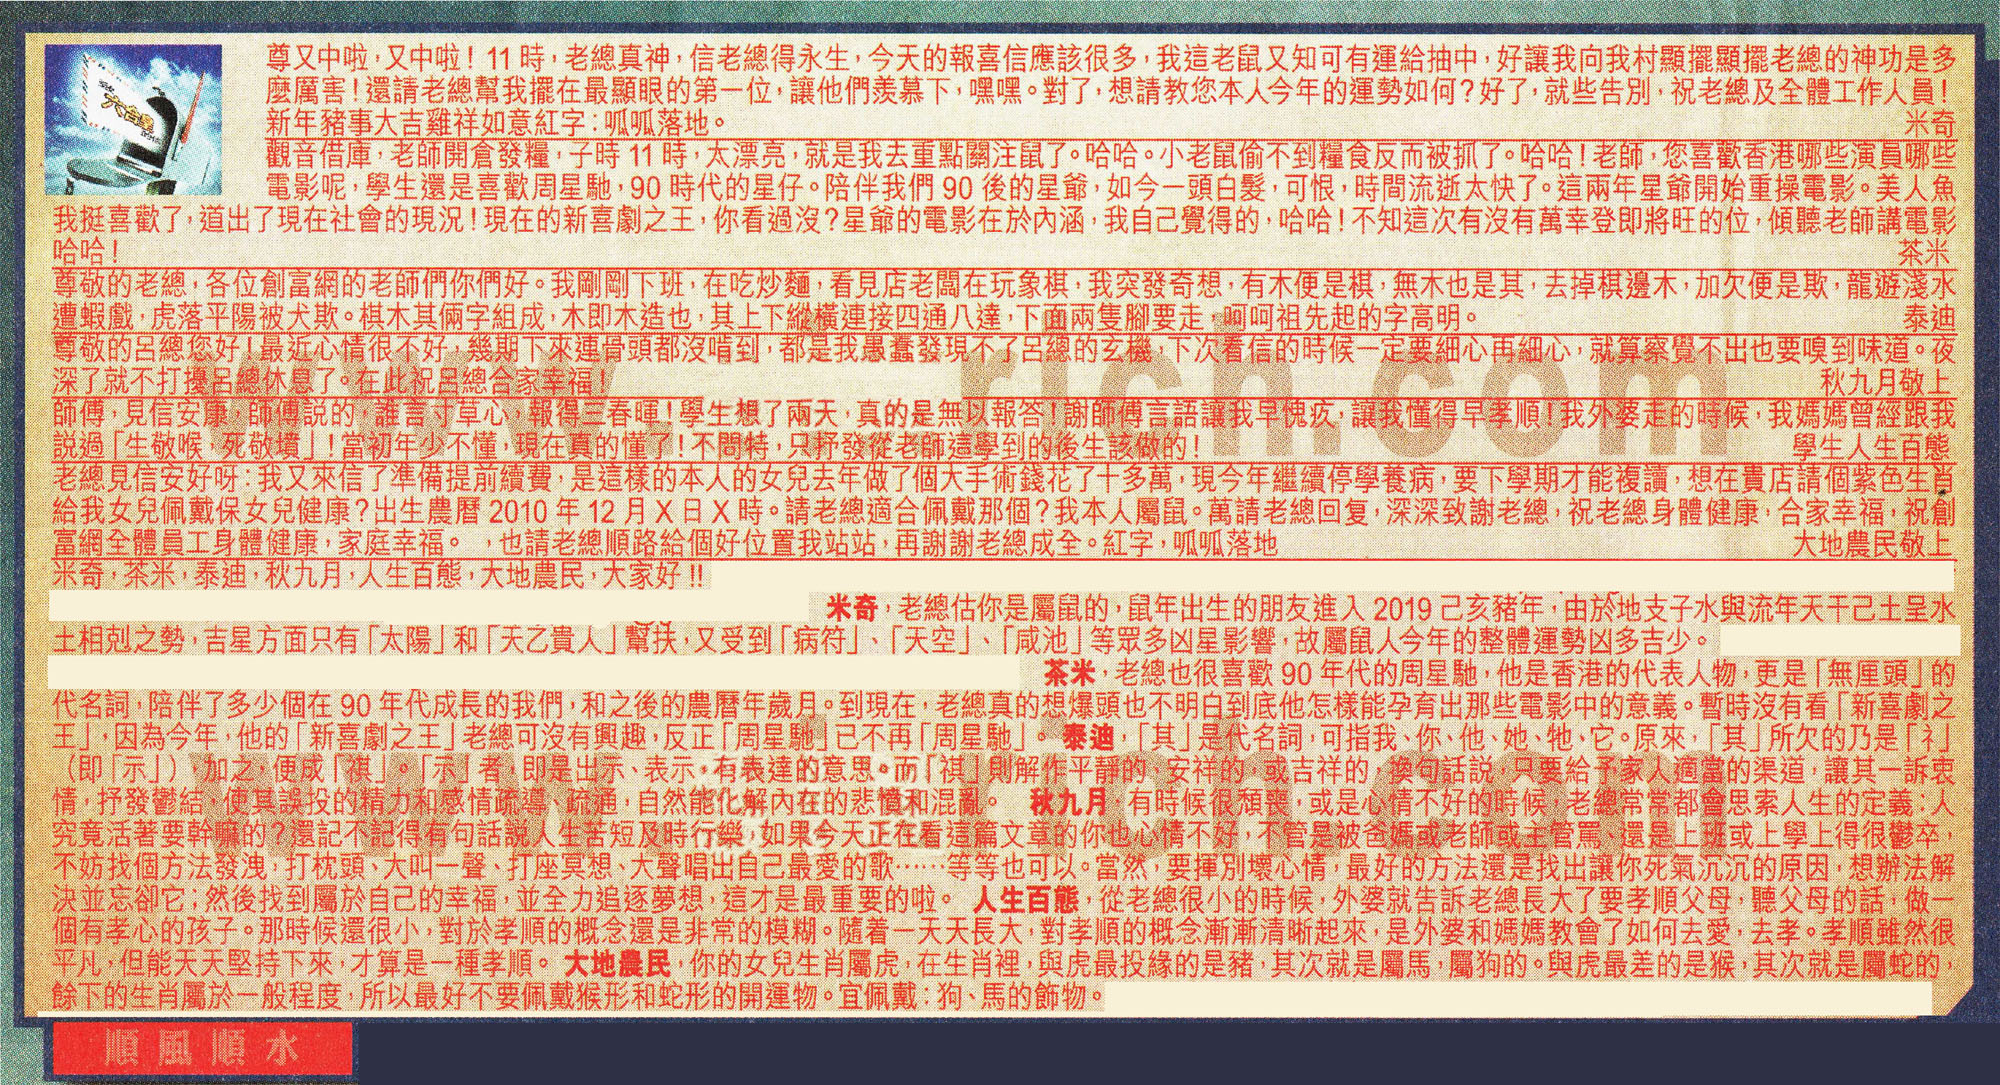 尊又中啦，又中啦！11時，老總真神，信老總得永生，今天的報喜信應該很多，我這老鼠又知可有運給抽中，好讓我向我村顯擺顯擺老總的神功是多
麼厲害！還請老總幫我擺在最顯眼的第一位，讓他們羨慕下，嘿嘿。對了，想請教您本人今年的運勢如何？好了，就些告別，祝老總及全體工作人員！
新年豬事大吉雞祥如意紅字：呱呱落地。 米奇
觀音借庫，老師開倉發糧，子時11時，太漂亮，就是我去重點關注鼠了。哈哈。小老鼠偷不到糧食反而被抓了。哈哈！老師，您喜歡香港哪些演員哪些
電影呢，學生還是喜歡周星馳，90時代的星仔。陪伴我們90後的星爺，如今一頭白髮，可恨，時間流逝太快了。這兩年星爺開始重操電影。美人魚
我挺喜歡了，道出了現在社會的現況！現在的新喜劇之王，你看過沒？星爺的電影在於內涵，我自己覺得的，哈哈！不知這次有沒有萬幸登即將旺的位，傾聽老師講電影
哈哈！ 茶米
尊敬的老總，各位創富網的老師們你們好。我剛剛下班，在吃炒麵，看見店老闆在玩象棋，我突發奇想，有木便是棋，無木也是其，去掉棋邊木，加欠便是欺，龍遊淺水
遭蝦戲，虎落平陽被犬欺。棋木其倆字組成，木即木造也，其上下縱橫連接四通八達，下面兩隻腳要走，呵呵祖先起的字高明。 泰迪
尊敬的呂總您好！最近心情很不好，幾期下來連骨頭都沒啃到，都是我愚蠢發現不了呂總的玄機，下次看信的時候一定要細心再細心，就算察覺不出也要嗅到味道。夜
深了就不打擾呂總休息了。在此祝呂總合家幸福！ 秋九月敬上
師傅，見信安康，師傅説的，誰言寸草心，報得三春暉！學生想了兩天，真的是無以報答！謝師傅言語讓我早愧疚，讓我懂得早孝順！我外婆走的時候，我媽媽曾經跟我
説過「生敬喉，死敬墳」！當初年少不懂，現在真的懂了！不問特，只抒發從老師這學到的後生該做的！ 學生人生百態
老總見信安好呀：我又來信了準備提前續費，是這樣的本人的女兒去年做了個大手術錢花了十多萬，現今年繼續停學養病，要下學期才能複讀，想在貴店請個紫色生肖
給我女兒佩戴保女兒健康？出生農曆2010年12月X日X時。請老總適合佩戴那個？我本人屬鼠。萬請老總回复，深深致謝老總，祝老總身體健康，合家幸福，祝創
富網全體員工身體健康，家庭幸福。，也請老總順路給個好位置我站站，再謝謝老總成全。紅字，呱呱落地 大地農民敬上
米奇，茶米，泰迪，秋九月，人生百態，大地農民，大家好!!
米奇，老總估你是屬鼠的，鼠年出生的朋友進入2019己亥豬年，由於地支子水與流年天干己土呈水
土相剋之勢，吉星方面只有「太陽」和「天乙貴人」幫扶，又受到「病符」、「天空」、「咸池」等眾多凶星影響，故屬鼠人今年的整體運勢凶多吉少。
茶米，老總也很喜歡90年代的周星馳，他是香港的代表人物，更是「無厘頭」的
代名詞，陪伴了多少個在90年代成長的我們，和之後的農曆年歲月。到現在，老總真的想爆頭也不明白到底他怎樣能孕育出那些電影中的意義。暫時沒有看「新喜劇之
王」，因為今年，他的「新喜劇之王」老總可沒有興趣，反正「周星馳」已不再「周星馳」。 泰迪，「其」是代名詞，可指我、你、他、她、牠、它。原來，「其」所欠的乃是「礻」
（即「示」），加之，便成「祺」。「示」者，即是出示、表示，有表達的意思。而「祺」則解作平靜的、安祥的，或吉祥的，換句話説，只要給予家人適當的渠道，讓其一訴衷
情，抒發鬱結，使其誤投的精力和感情疏導、疏通，自然能化解內在的悲憤和混亂。 秋九月，有時候很頹喪，或是心情不好的時候，老總常常都會思索人生的定義：人
究竟活著要幹嘛的？還記不記得有句話説人生苦短及時行樂，如果今天正在看這篇文章的你也心情不好，不管是被爸媽或老師或主管罵、還是上班或上學上得很鬱卒，
不妨找個方法發洩，打枕頭、大叫一聲、打座冥想、大聲唱出自己最愛的歌……等等也可以。當然，要揮別壞心情，最好的方法還是找出讓你死氣沉沉的原因，想辦法解
決並忘卻它；然後找到屬於自己的幸福，並全力追逐夢想，這才是最重要的啦。 人生百態，從老總很小的時候，外婆就告訴老總長大了要孝順父母，聽父母的話，做一
個有孝心的孩子。那時候還很小，對於孝順的概念還是非常的模糊。隨着一天天長大，對孝順的概念漸漸清晰起來，是外婆和媽媽教會了如何去愛，去孝。孝順雖然很
平凡，但能天天堅持下來，才算是一種孝順。 大地農民，你的女兒生肖屬虎，在生肖裡，與虎最投緣的是豬，其次就是屬馬，屬狗的。與虎最差的是猴，其次就是屬蛇的，
餘下的生肖屬於一般程度，所以最好不要佩戴猴形和蛇形的開運物。宜佩戴：狗、馬的飾物。
順風順水